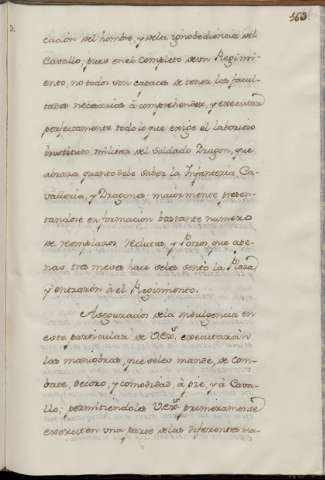 163
cación del hombre, y dela ynobediencia del
Cavallo, pues en el completo de un Regimi-
ento, no todos son capaces de tener las facul-
tades necesarias á comprehender, y executar
perfectamente todo lo que exige el laborioso
Instituto militar del Soldado Dragon, que
abraza quanto debe saber la Infanteria, Ca-
valleria, y Dragones: maiormente presen-
tandose en formacion bastante numero
de reemplazos, reclutas, y Potros, que ape-
nas tres meses hace seles sentó la Plaza
y entraron á el Regimiento.
Asegurados dela indulgencia en
este particular de V.Exª. executarán
las maniobras, que seles mande, de com-
bate, decoro, y comodidad á pie, y á Cava-
llo; permitiendoles V.Exª. primeramente
executen una parte delas diferentes ma-